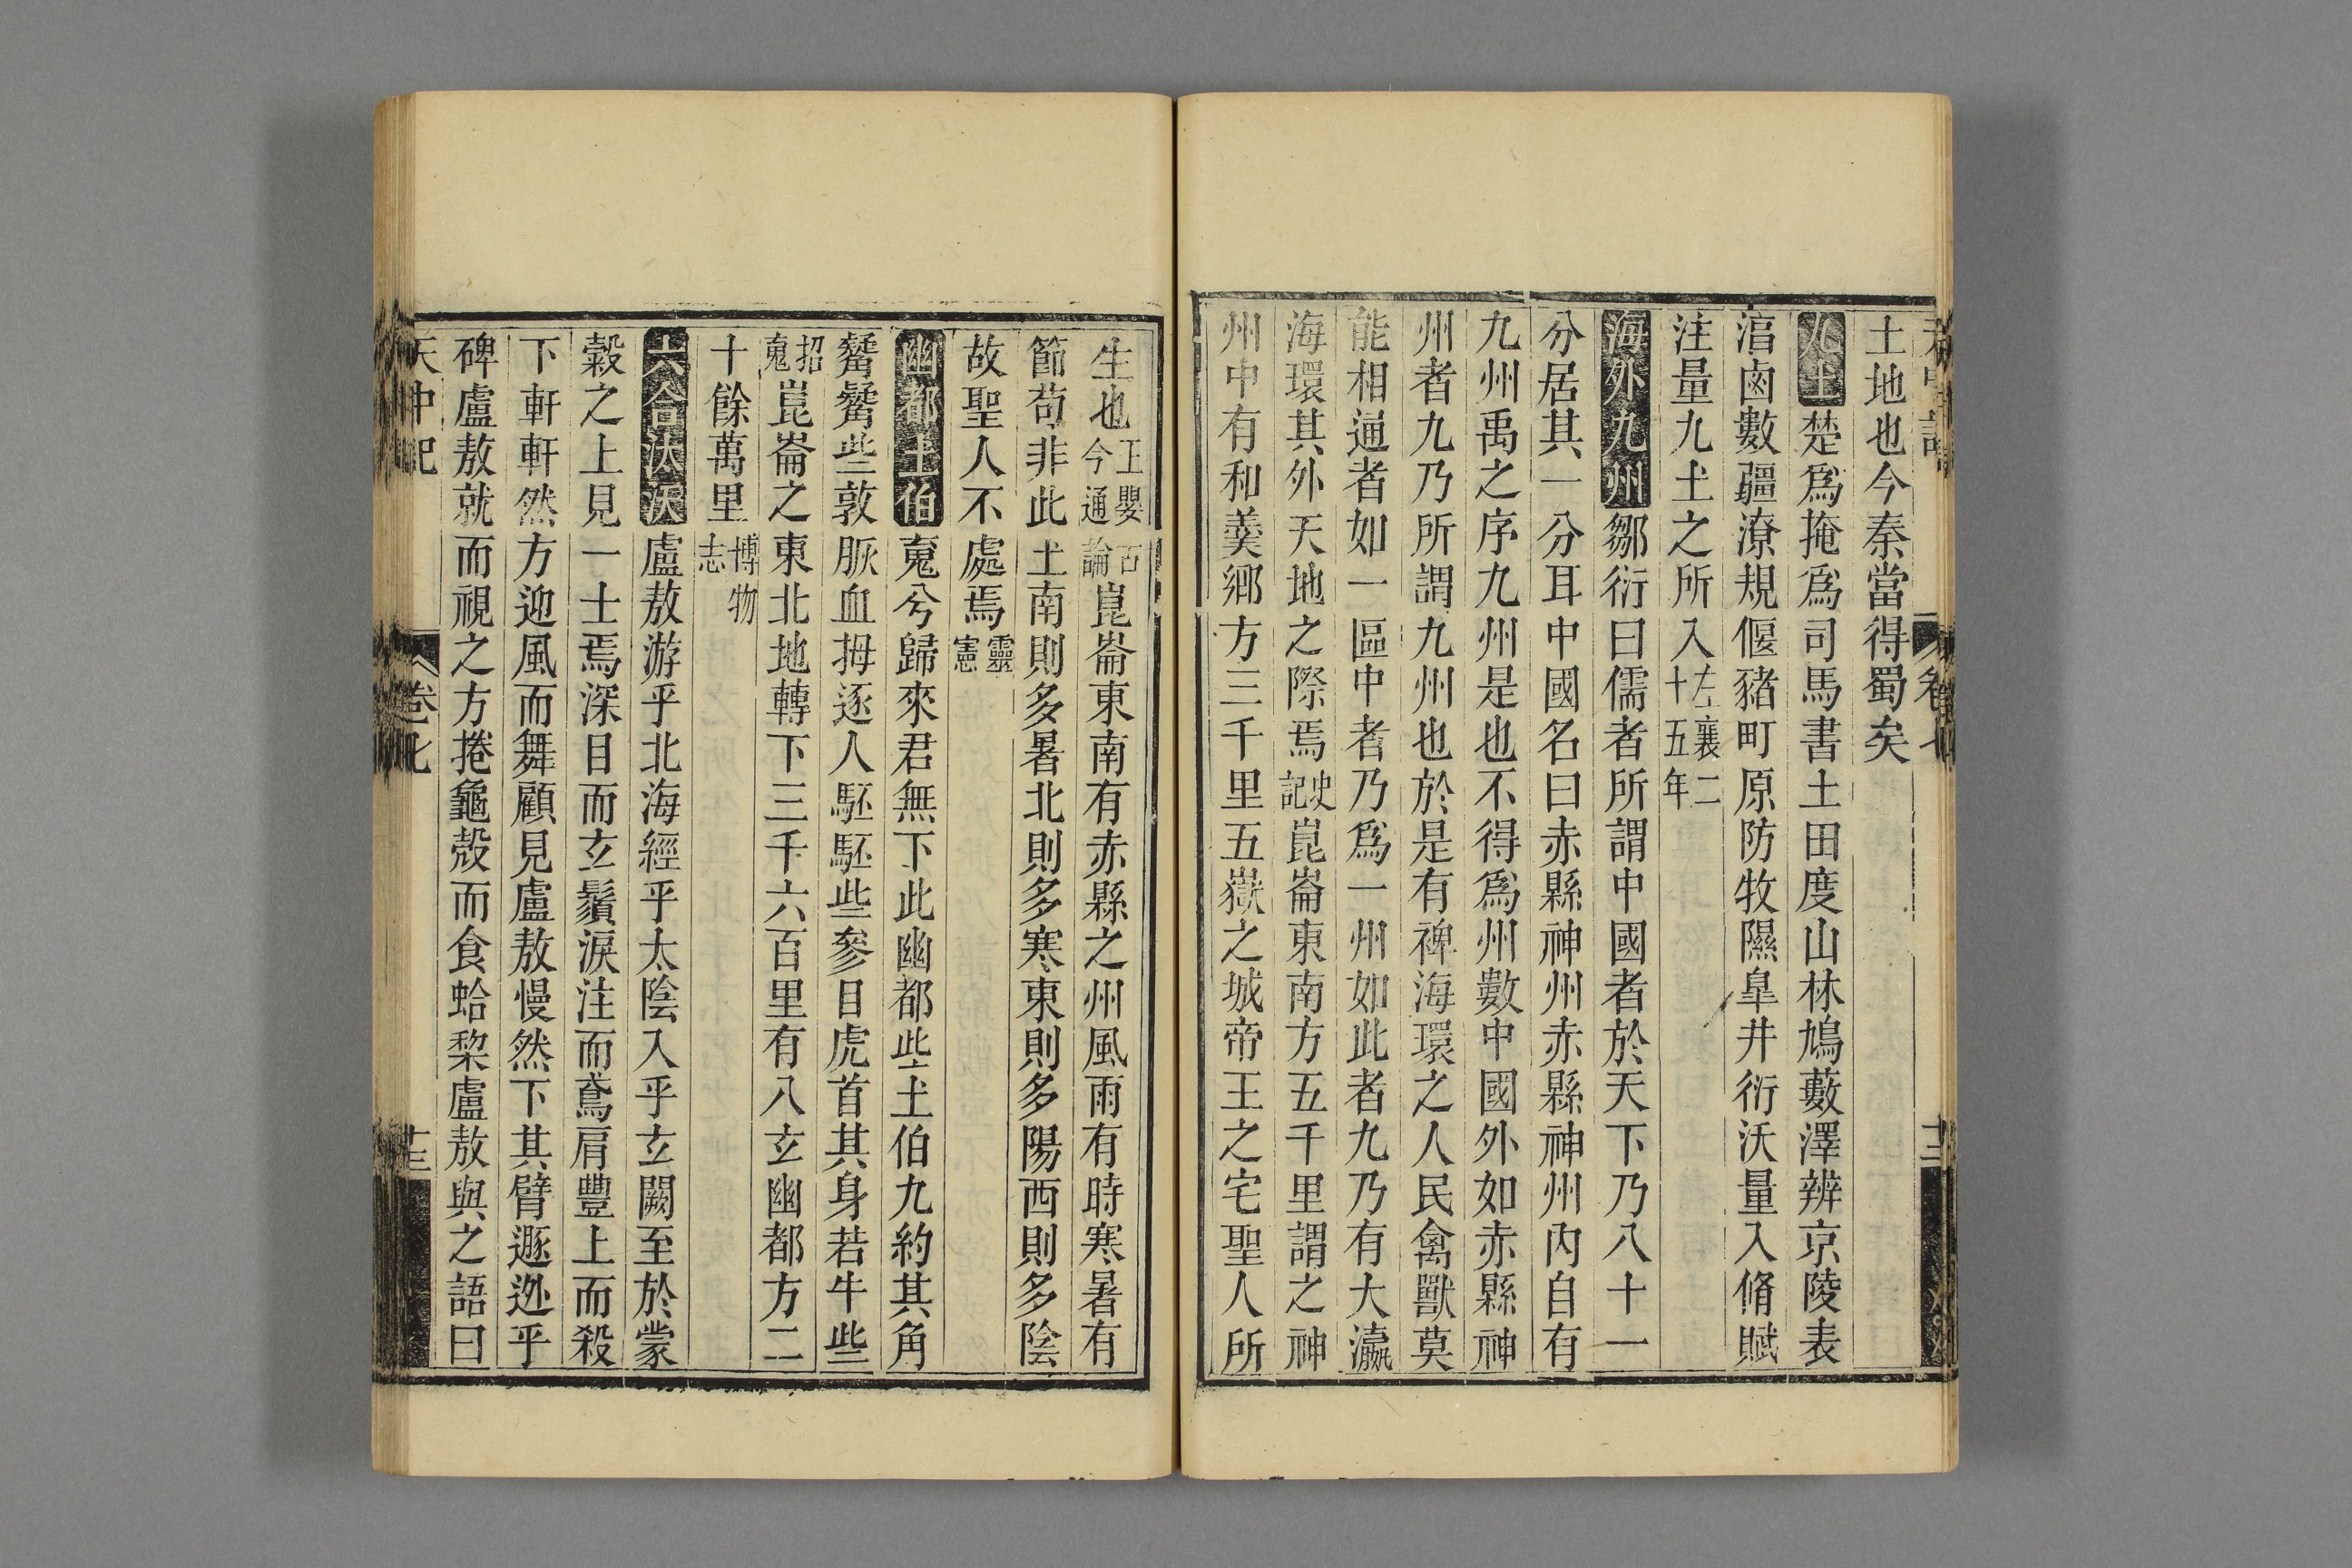 土地也今秦當得蜀矣
九土楚爲掩爲司馬書土田度山林鳩藪澤辨京陵表
淳鹵數疆潦規偃豬町原防牧隰皐井衍沃量入脩賦
注量九土之所入左襄二十五年
海外九州鄒衍曰儒者所謂中國者於天下乃八十一
分居其一分耳中國名曰赤縣神州赤縣神州內自有
九州禹之序九州是也不得爲州數中國外如赤縣神
州者九乃所謂九州也於是有裨海環之人民禽獸莫
能相通者如一區中者乃爲一州如此者九乃有大瀛
海環其外天地之際焉史記崑崙東南方五千里謂之神
州中有和羹鄉方三千里五嶽之城帝王之宅聖人所
生也王嬰古今通論崑崙東南有赤縣之州風雨有時寒暑有
節苟非此土南則多暑北則多寒東則多陽西則多陰
故聖人不處焉靈憲
幽都土伯䰟兮歸來君無下此幽都些土伯九約其角
觺觺些敦脄血拇逐人駓駓些參目虎首其身若牛些
招䰟崑崙之東北地轉下三千六百里有八玄幽都方二
十餘萬里博物志
六合汰沃盧敖游乎北海經乎太陰入乎玄闕至於蒙
穀之上見一士焉深目而玄鬚淚注而鳶肩豐上而殺
下軒軒然方迎風而舞顧見盧敖慢然下其臂遯逃乎
碑盧敖就而視之方捲龜殼而食蛤棃盧敖與之語曰
天中記
卷七
十三